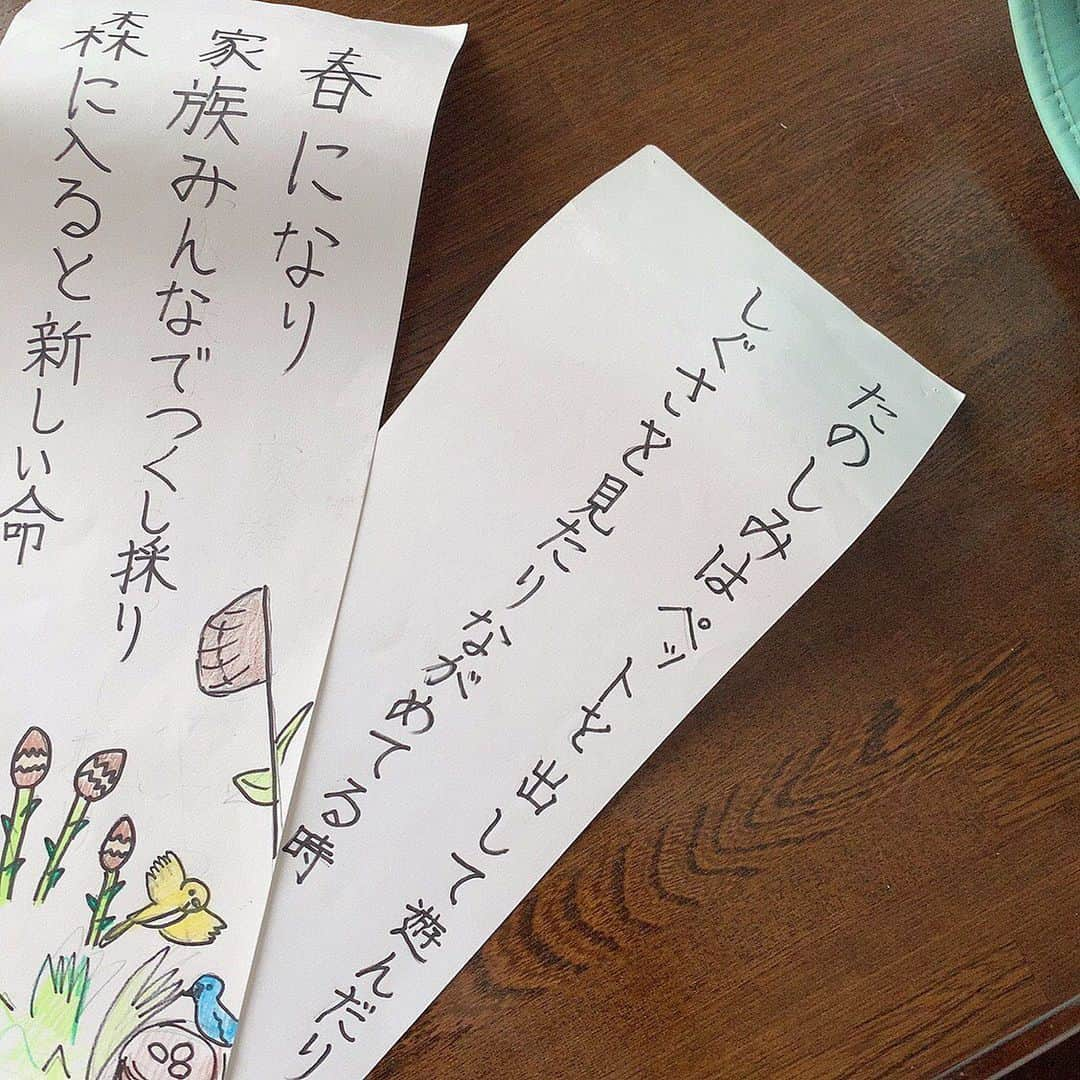 春になり
家族みんなでつくし採り
森に入ると新しい命
たのしみはペットを出して遊んだり
しぐさを見たりながめてる時